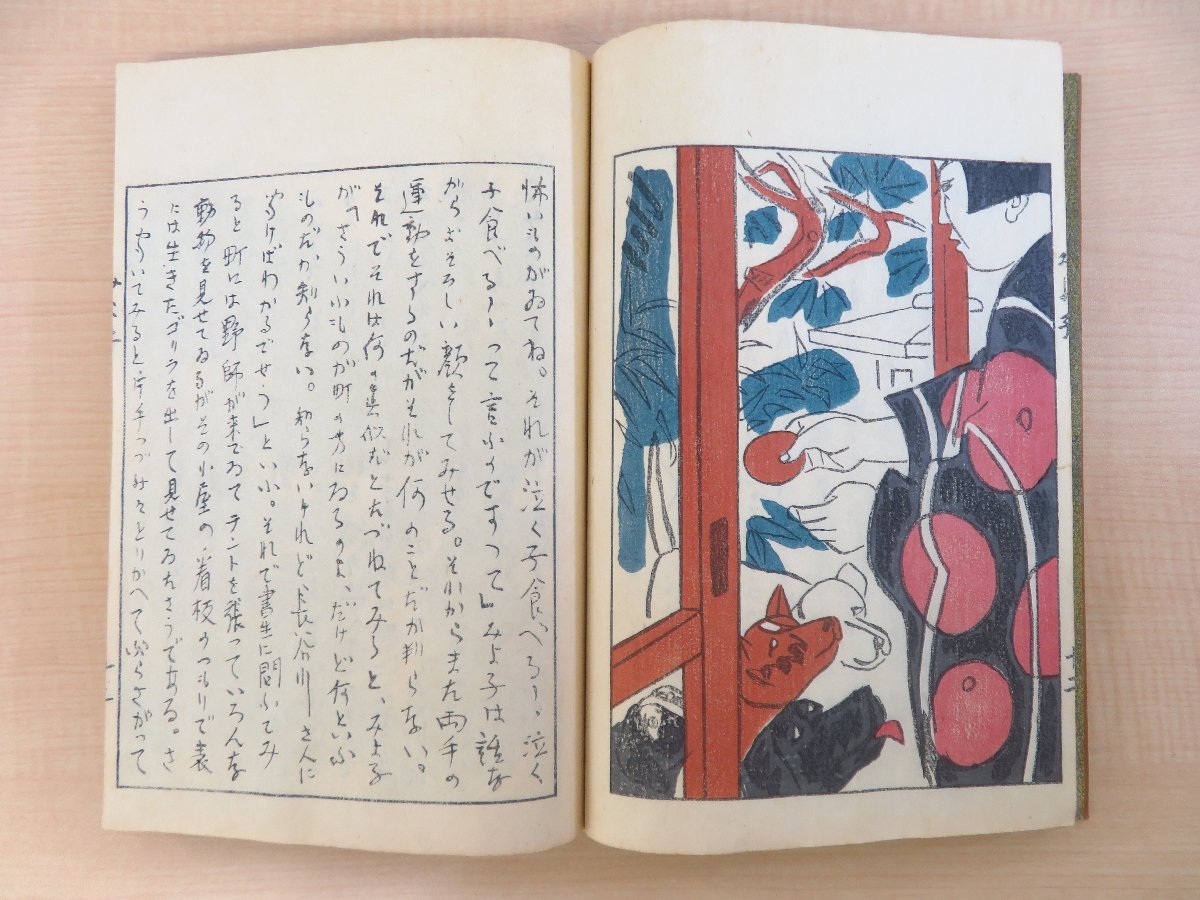 怖いものがゐてね。それが泣く子食べる〱泣く
子食べる〱って言ふのですつて」みよ子は誰な
がらおそろしい顔をしてみせる。それからまた両手の
運動をするのだがそれが何のことだか判らない。
それでそれは何の真似だとたづねてみると、みよ子
が「さういふものが町の方にゐるのよ、だけど何といふ
ものだか知らない。知らないけれど長谷川さんに
きけばわかるでせう」といふ。それで書生に問ふてみ
ると町には野師が来てゐてテントを張っていろんな
動物を見せてゐるがその小屋の看板のつもりで表
には生きたゴリラを出して見せてゐたさうである。さ
うきいてみると片手づつみぎとりかへてぶらさがって